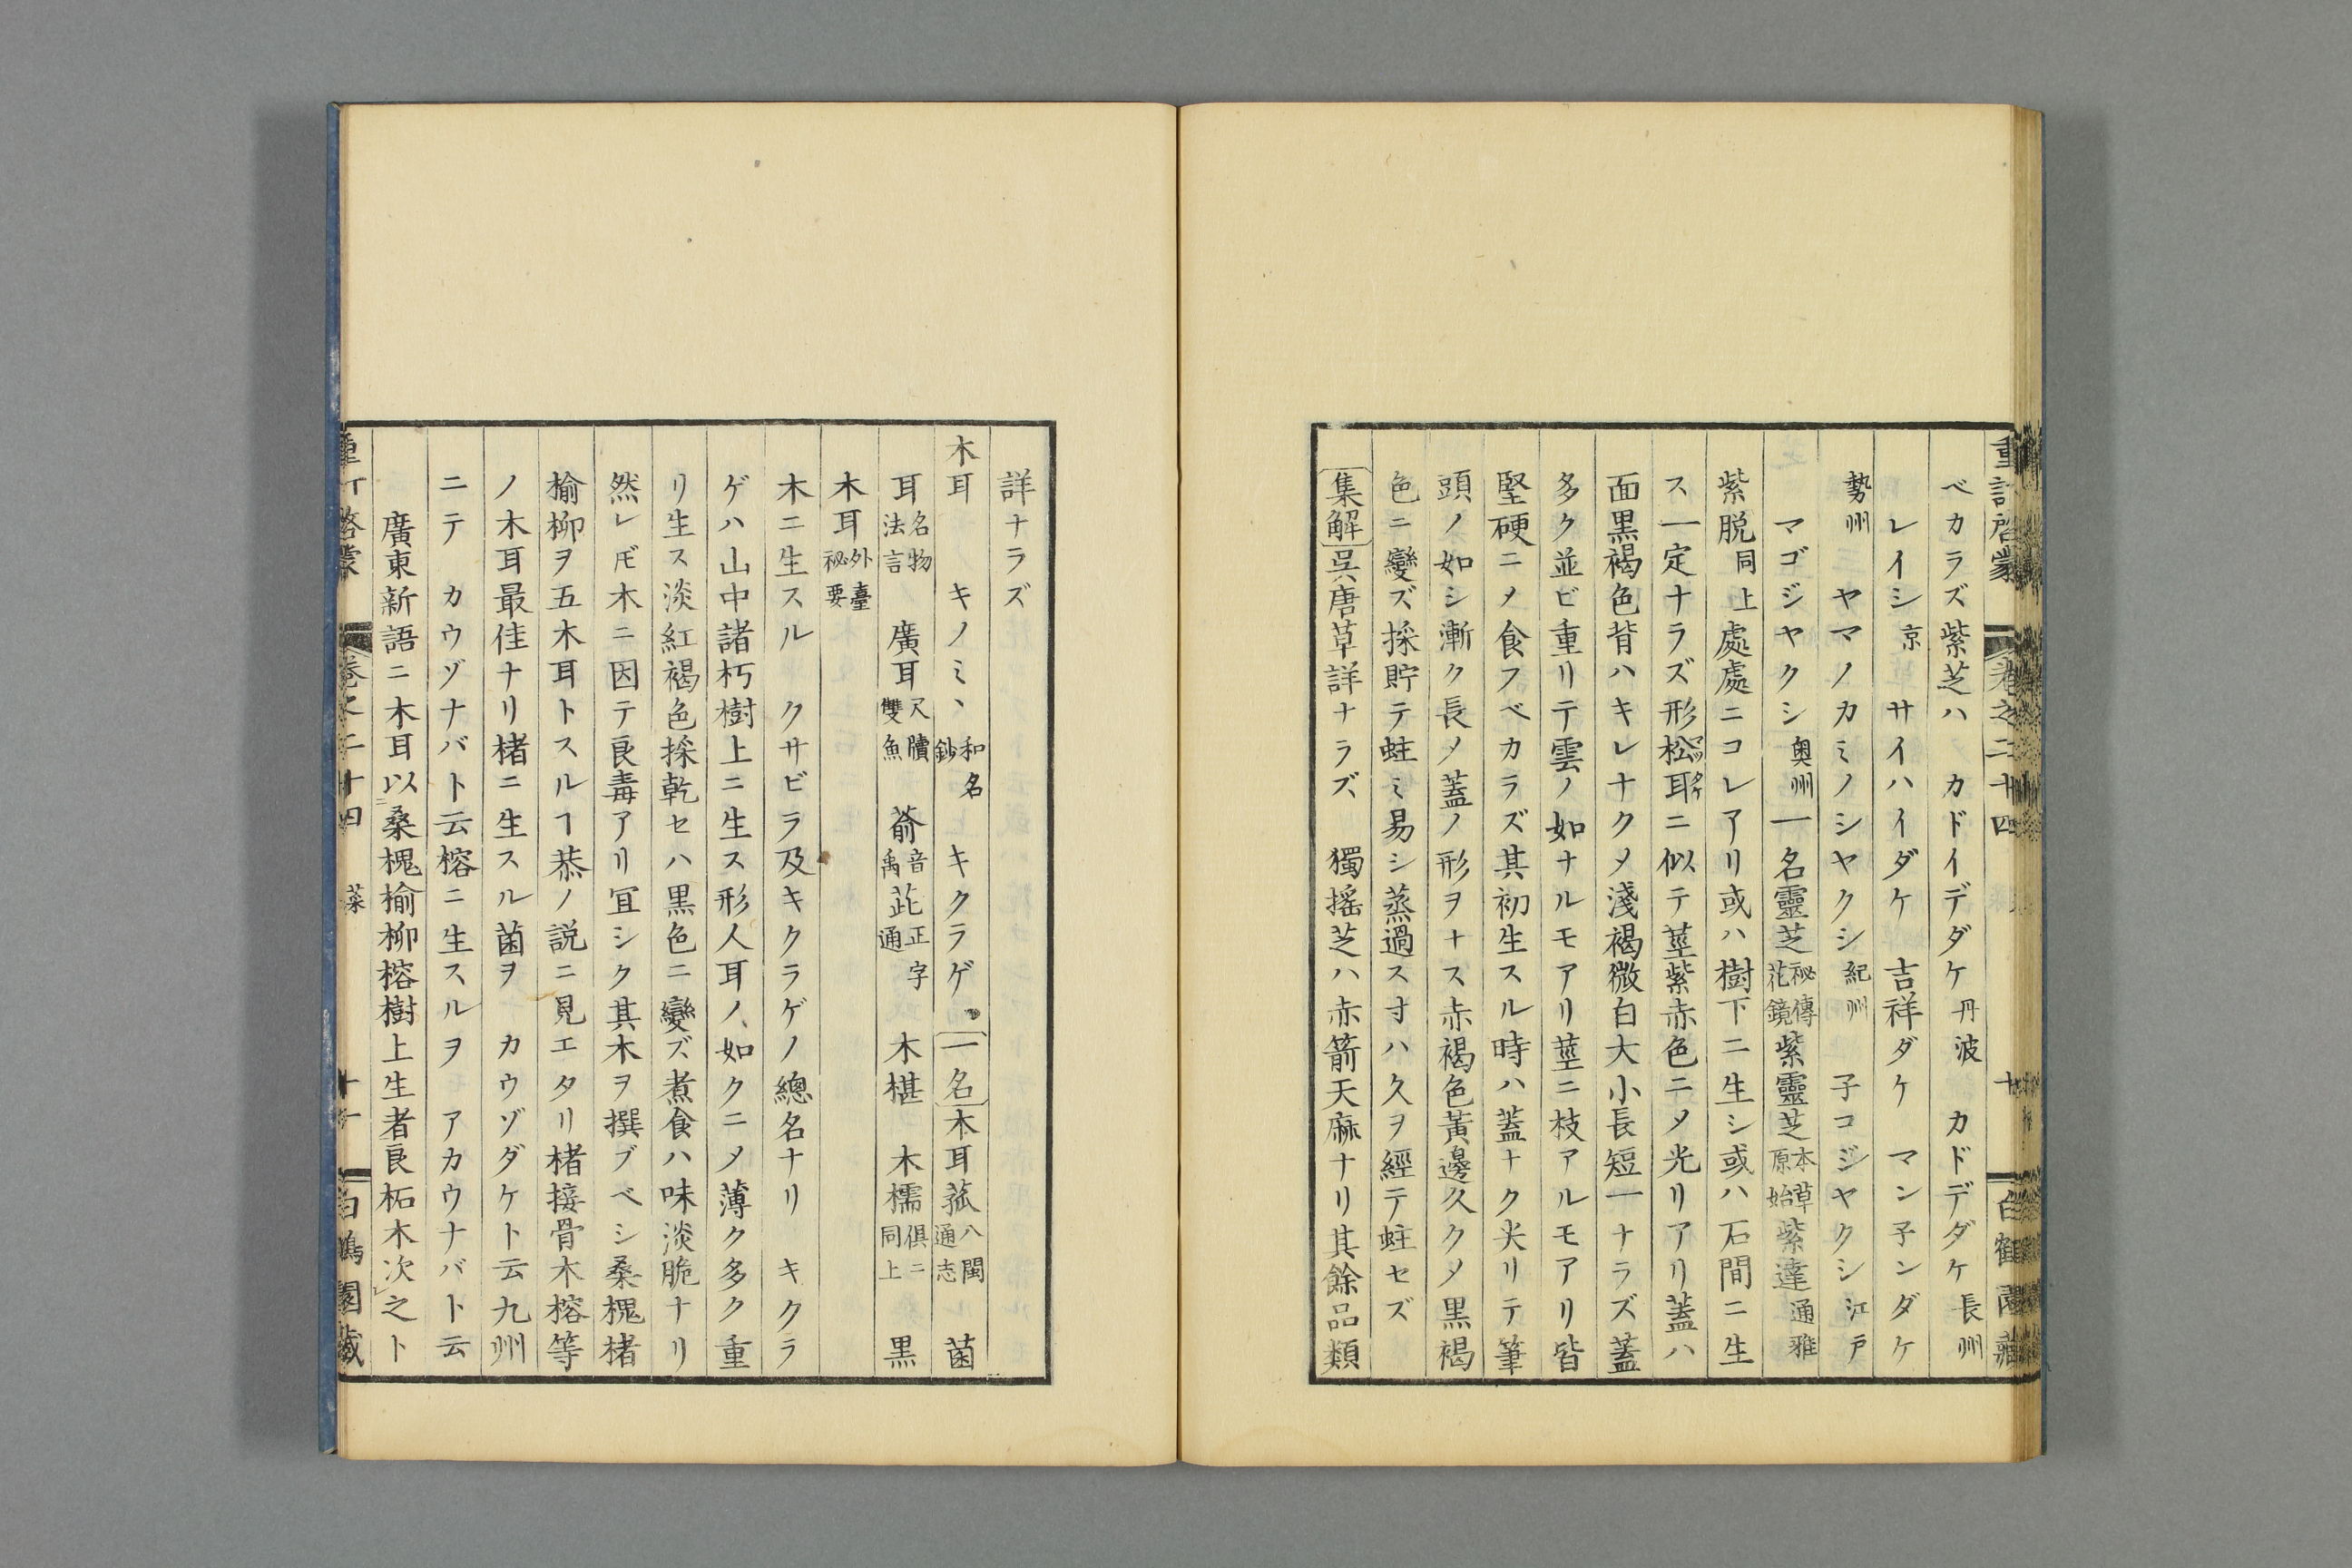 重訂啓蒙 卷之二十四 十 白鶴園藏
ベカラズ紫芝ハ カドイデダケ丹波 カドデダケ長州
レイシ京 サイハイダケ 吉祥ダケ マン子ンダケ
勢州 ヤマノカミノシヤクシ紀州 子コジヤクシ江戸
マゴジヤクシ奥州 一名靈芝秘傳花鏡紫靈芝本草原始紫達通雅
紫脱同上處處ニコレアリ或ハ樹下ニ生シ或ハ石間ニ生
ス一定ナラズ形松耳ニ似テ莖紫赤色ニメ光リアリ蓋ハ
面黒褐色背ハキレナクメ淺褐微白大小長短一ナラズ蓋
多ク並ビ重リテ雲ノ如ナルモアリ莖ニ枝アルモアリ皆
堅硬ニメ食フベカラズ其初生スル時ハ蓋ナク尖リテ筆
頭ノ如シ漸ク長メ蓋ノ形ヲナス赤褐色黃邊久クメ黒褐
色ニ變ズ採貯テ蛀ミ易シ蒸過スヿハ久ヲ經テ蛀セズ
集解呉唐草詳ナラズ 獨搖芝ハ赤箭天麻ナリ其餘品類
詳ナラズ
木耳 キノミヽ和名鈔 キクラゲ 一名木耳菰八閩通志 菌
耳名物法言 廣耳尺牘雙魚 蕍音禹 正字通 木椹 木檽倶ニ同上 黒
木耳外臺秘要
木ニ生スル クサビラ及キクラゲノ總名ナリ キクラ
ゲハ山中諸朽樹上ニ生ス形人耳ノ如クニメ薄ク多ク重
リ生ス淡紅褐色採乾セハ黒色ニ變ズ煮食ハ味淡脆ナリ
然レ𪜈木ニ因テ良毒アリ冝シク其木ヲ撰ブベシ桑槐楮
楡柳ヲ五木耳トスルヿ恭ノ説ニ見エタリ楮接骨木榕等
ノ木耳最佳ナリ楮ニ生スル菌ヲ カウゾダケト云九州
ニテ カウヅナバト云榕ニ生スルヲ アカウナバト云
廣東新語ニ木耳以桑槐楡柳榕樹上生者良柘木次之ト
重訂啓蒙 卷之二十四 菜 十一 白鶴園藏